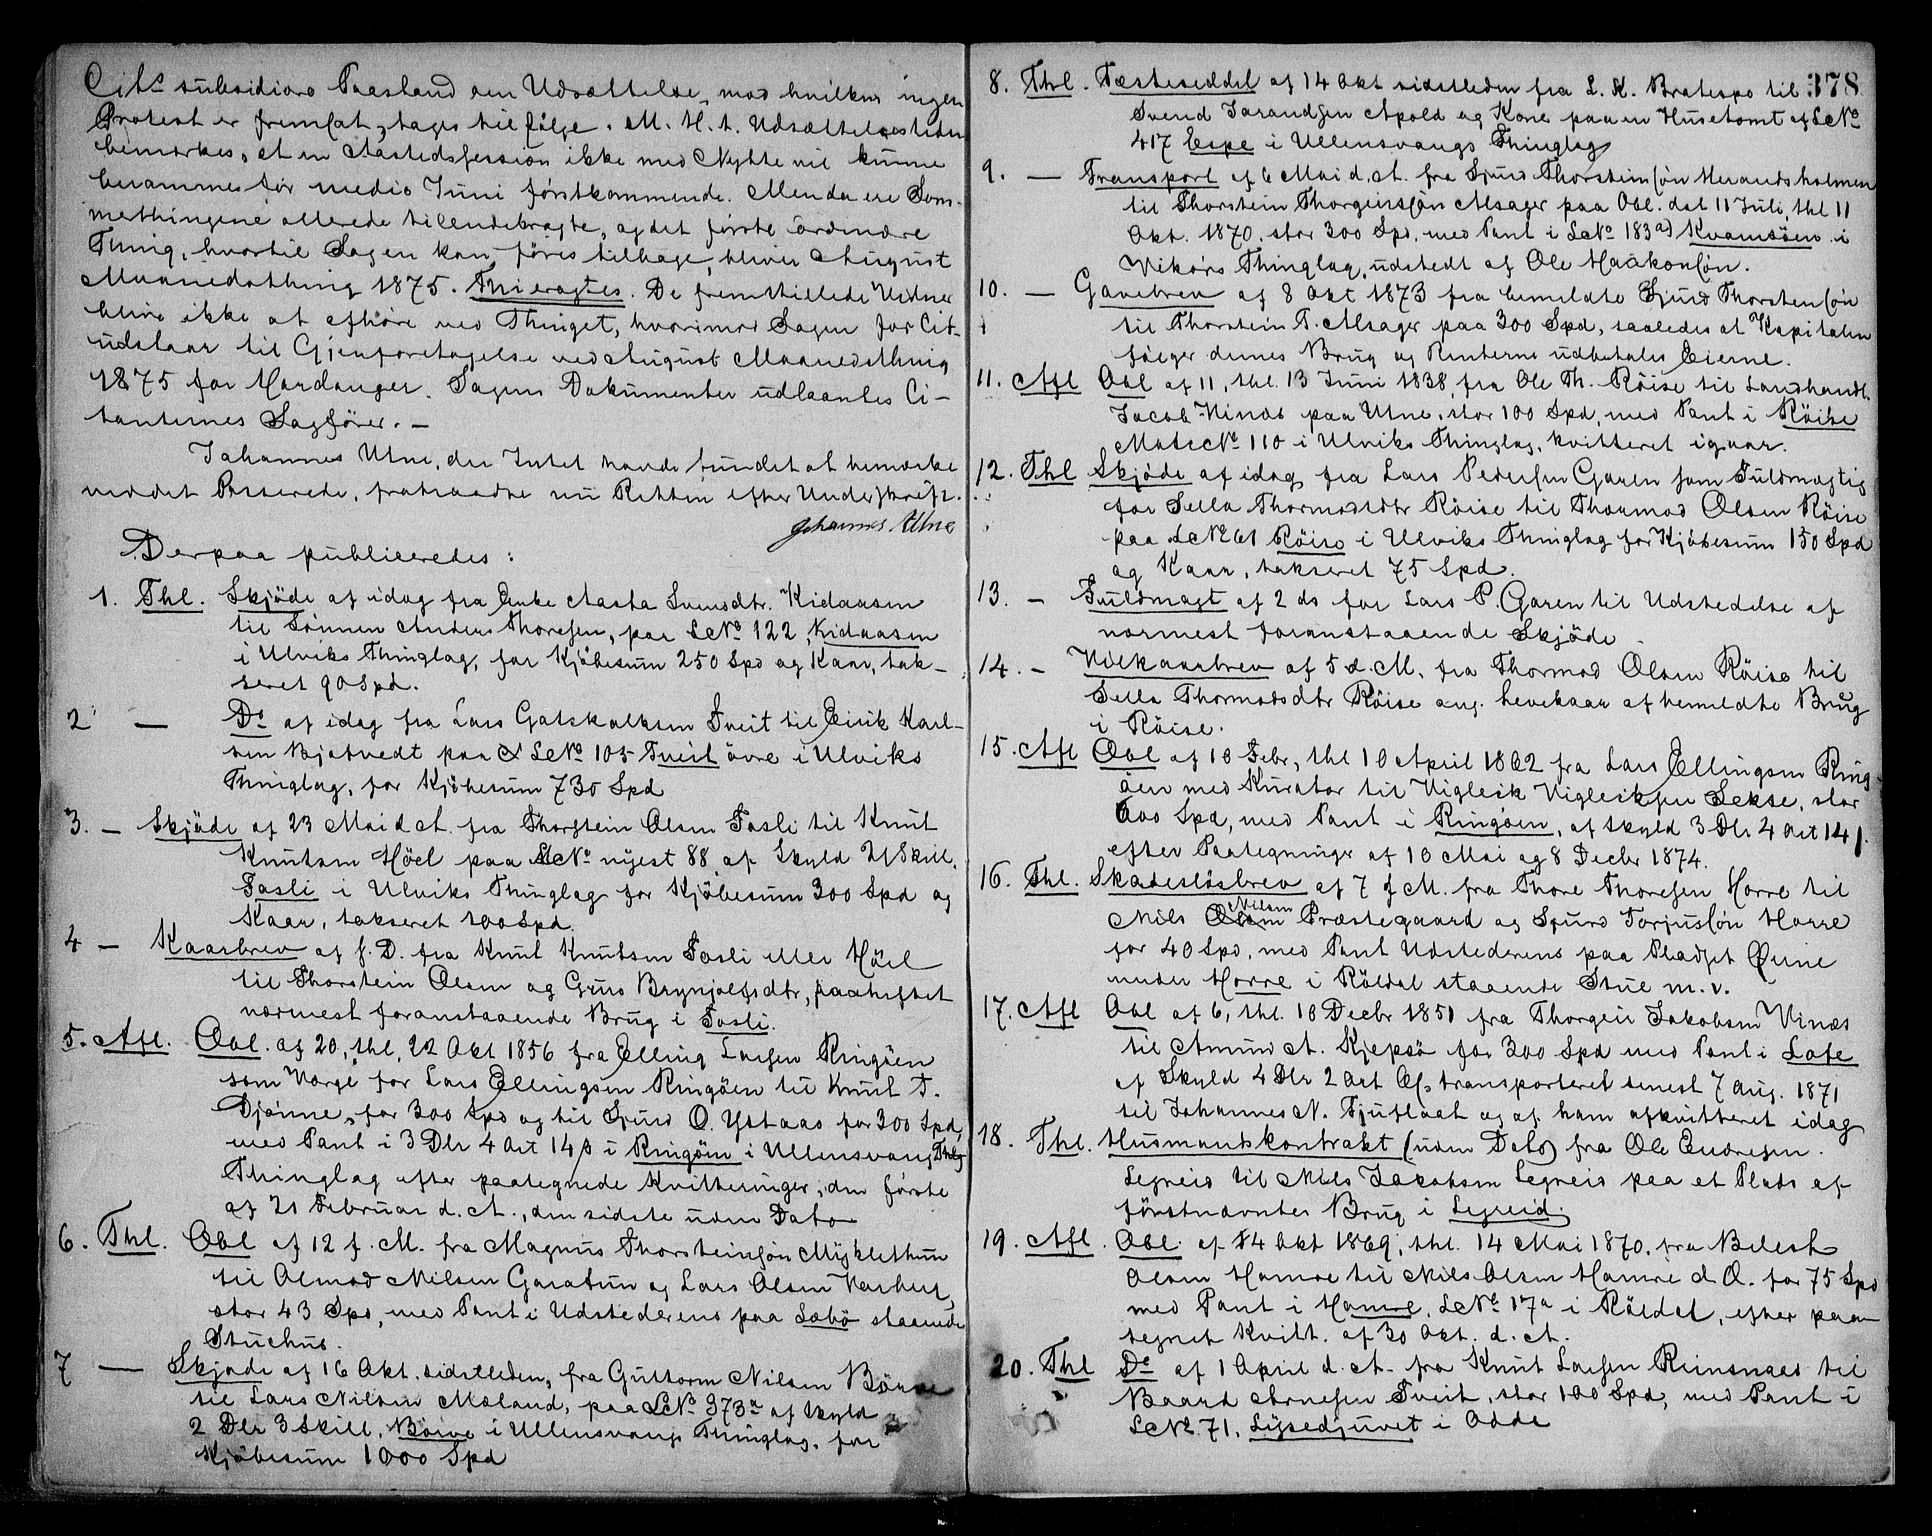 Cit<sup>s</sup> subsidiære Paastand om Udsættelse, mod hvilken ingen
Protest er fremsat, tages til følge. M. H. t. Udsættelsestiden
bemærkes, at en Aastedssession ikke med Nytte vil kunne
berammes før medio Juni førstkommende. Men da ere Som-
merthingene allerede tilendebragte, og det første ordinære
Thing, hvortil Sagen kan føres tilbage, bliver August
Maanedsthing 1875. Thi eragtes. De fremstillede Vidner
blive ikke at afhøre ved Thinget, hvorimod Sagen for Cit-
udstaar til Gjenforetagelse ved August Maanedsthing
1875 for Hardanger. Sagens Dokumenter udlaantes Ci-
tanternes Sagfører. —
Johannes Utne, der Intet havde fundet at bemærke
ved det Passerede, fratraadte nu Retten efter Underskrift.
Johannes Utne
Derpaa publiceredes:
1. Thl. Skjøde af idag fra Enke Aasta Svensdtr. Kidaasen
til Sønnen Anders Thoresen, paa LNo 122 Kidaasen
i Ulviks Thinglag, for Kjøbesum 250 Spd og Kaar, tak-
seret 90 Spd.
2 — Do af idag fra Lars Gatskalksen Tveit til Eirik Karl-
sen Bjotvedt paa LNo 105 Tveit øvre i Ulviks
Thinglag, for Kjøbesum 730 Spd
3. — Skjøde af 23 Mai d. A. fra Thorstein Olsen Fosli til Knut
Knutsen Höel paa LNo nyest 88 af Skyld 21 Skill.
Fosli i Ulviks Thinglag for Kjøbesum 300 Spd og
Kaar, takseret 100 Spd.
4 — Kaarbrev af s. D. fra Knut Knutsen Fosli eller Höel
til Thorstein Olsen og Guro Brynjolfsdtr, paaheftet
nærmest foranstaaende Brug i Fosli.
5. Afl. Obl. af 20, thl. 22 Okt 1856 fra Elling Larsen Ringöen
som Værge for Lars Ellingsen Ringöen til Knut T.
Djönne, for 300 Spd og til Sjurd O. Ystaas for 300 Spd,
med Pant i 3 Dlr 4 Ort 14 s i Ringöen i Ullensvang Thlg
Thinglag efter paategnede Kvitteringer, den første
af 21 Februar d. A., den sidste uden Dato
6. Thl. Obl af 12 f. M. fra Magnus Thorsteinsön Myklethun
til Olmod Nilsen Garatun og Lars Olsen Varberg
stor 43 Spd, med Pant i Udstederens paa Sæbö staaende
Stuehus.
7 — Skjøde af 16 Okt. sidstleden, fra Guttorm Nilsen Börve
til Lars Nilsen Mæland, paa LNo 373a af Skyld
2 Dlr 3 Skill. Börve i Ullensvangs Thinglag, for
Kjøbesum 1000 Spd
378
8. Thl. Fæsteseddel af 14 Okt sidstleden fra L. K. Bratespe til
Svend Jarandsen Apold og Kone paa en Hustomt af LNo
417 Espe i Ullensvangs Thinglag
9. — Transport af 6 Mai d. A. fra Sjurd Thorsteinsön Herandsholmen
til Thorstein Thorgeirsjön Alsager paa Obl. dat 11 Juli, thl 11
Okt. 1870, stor 300 Spd, med Pant i LNo 183a) Kvamsöen i
Vikörs Thinglag, udstedt af Ole Haakonsön.
10. — Gavebrev af 8 Okt 1873 fra bemeldte Sjurd Thorstensön
til Thorstein T. Alsager paa 300 Spd, saaledes at Kapitalen
følger dennes Brug og Renterne udbetales Eierne.
11. Afl Obl af 11, thl. 13 Juni 1838 fra Ole Th. Röise til Landhandl.
Jacob Vinæs paa Utne, stor 100 Spd, med Pant i Röise
MatrNo 110 i Ulviks Thinglag, kvitteret igaar.
12. Thl Skjøde af idag fra Lars Pedersen Garen som Fuldmægtig
for Sella Thormodsdtr Röise til Thormod Olsen Röise
paa LNo 61 Röise i Ulviks Thinglag for Kjøbesum 150 Spd
og Kaar, takseret 75 Spd.
13. — Fuldmagt af 2 ds for Lars P. Garen til Udstedelse af
nærmest foranstaaende Skjøde.
14. — Vilkaarsbrev af 5 d. M. fra Thormod Olsen Röise til
Sella Thormodsdtr Röise ang. Levekaar af bemeldte Brug
i Röise.
15. Afl Obl af 10 Febr, thl 10 April 1862 fra Lars Ellingsen Ring-
öen med Kurator til Vigleik Vigleiksen Sekse, stor
600 Spd, med Pant i Ringöen, af Skyld 3 Dlr 4 Ort 14 s.
efter Paategninger af 10 Mai og 8 Decbr 1874.
16. Thl. Skadesløsbrev af 7 f. M. fra Thore Thoresen Horre til
Nils Olsen Nilsen Præstegaard og Sjurd Torjusson Horre
for 40 Spd, med Pant Udstederens paa Pladset Öine
under Horre i Röldal staaende Stue m. v.
17. Afl Obl af 6, thl. 10 Decbr 1851 fra Thorgeir Jakobsen Vinæs
til Amund A. Kjepsö for 300 Spd med Pant i Lote
af Skyld 4 Dlr 2 Ort transporteret senest 7 Aug. 1871
til Johannes N. Tjuflaat og af ham afkvitteret idag
18. Thl. Husmandskontrakt (uden Dato) fra Ole Endresen
Legreid til Nils Jacobsen Legreid paa et Plads af
førstnævntes Brug i Legreid.
19. Afl. Obl. af 14 Okt 1869, thl. 14 Mai 1870, fra Belest
Olsen Hamre til Nils Olsen Hamre d. O. for 75 Spd
med Pant i Hamre, LNo 17a i Röldal, efter paa-
tegnet Kvitt. af 30 Okt. d. A.
20. Thl Do af 1 April d. A. fra Knut Larsen Reinsnaes til
Baard Arnesen Tveit, stor 100 Spd, med Pant i
LNo 71, Lysedjuvet i Odde